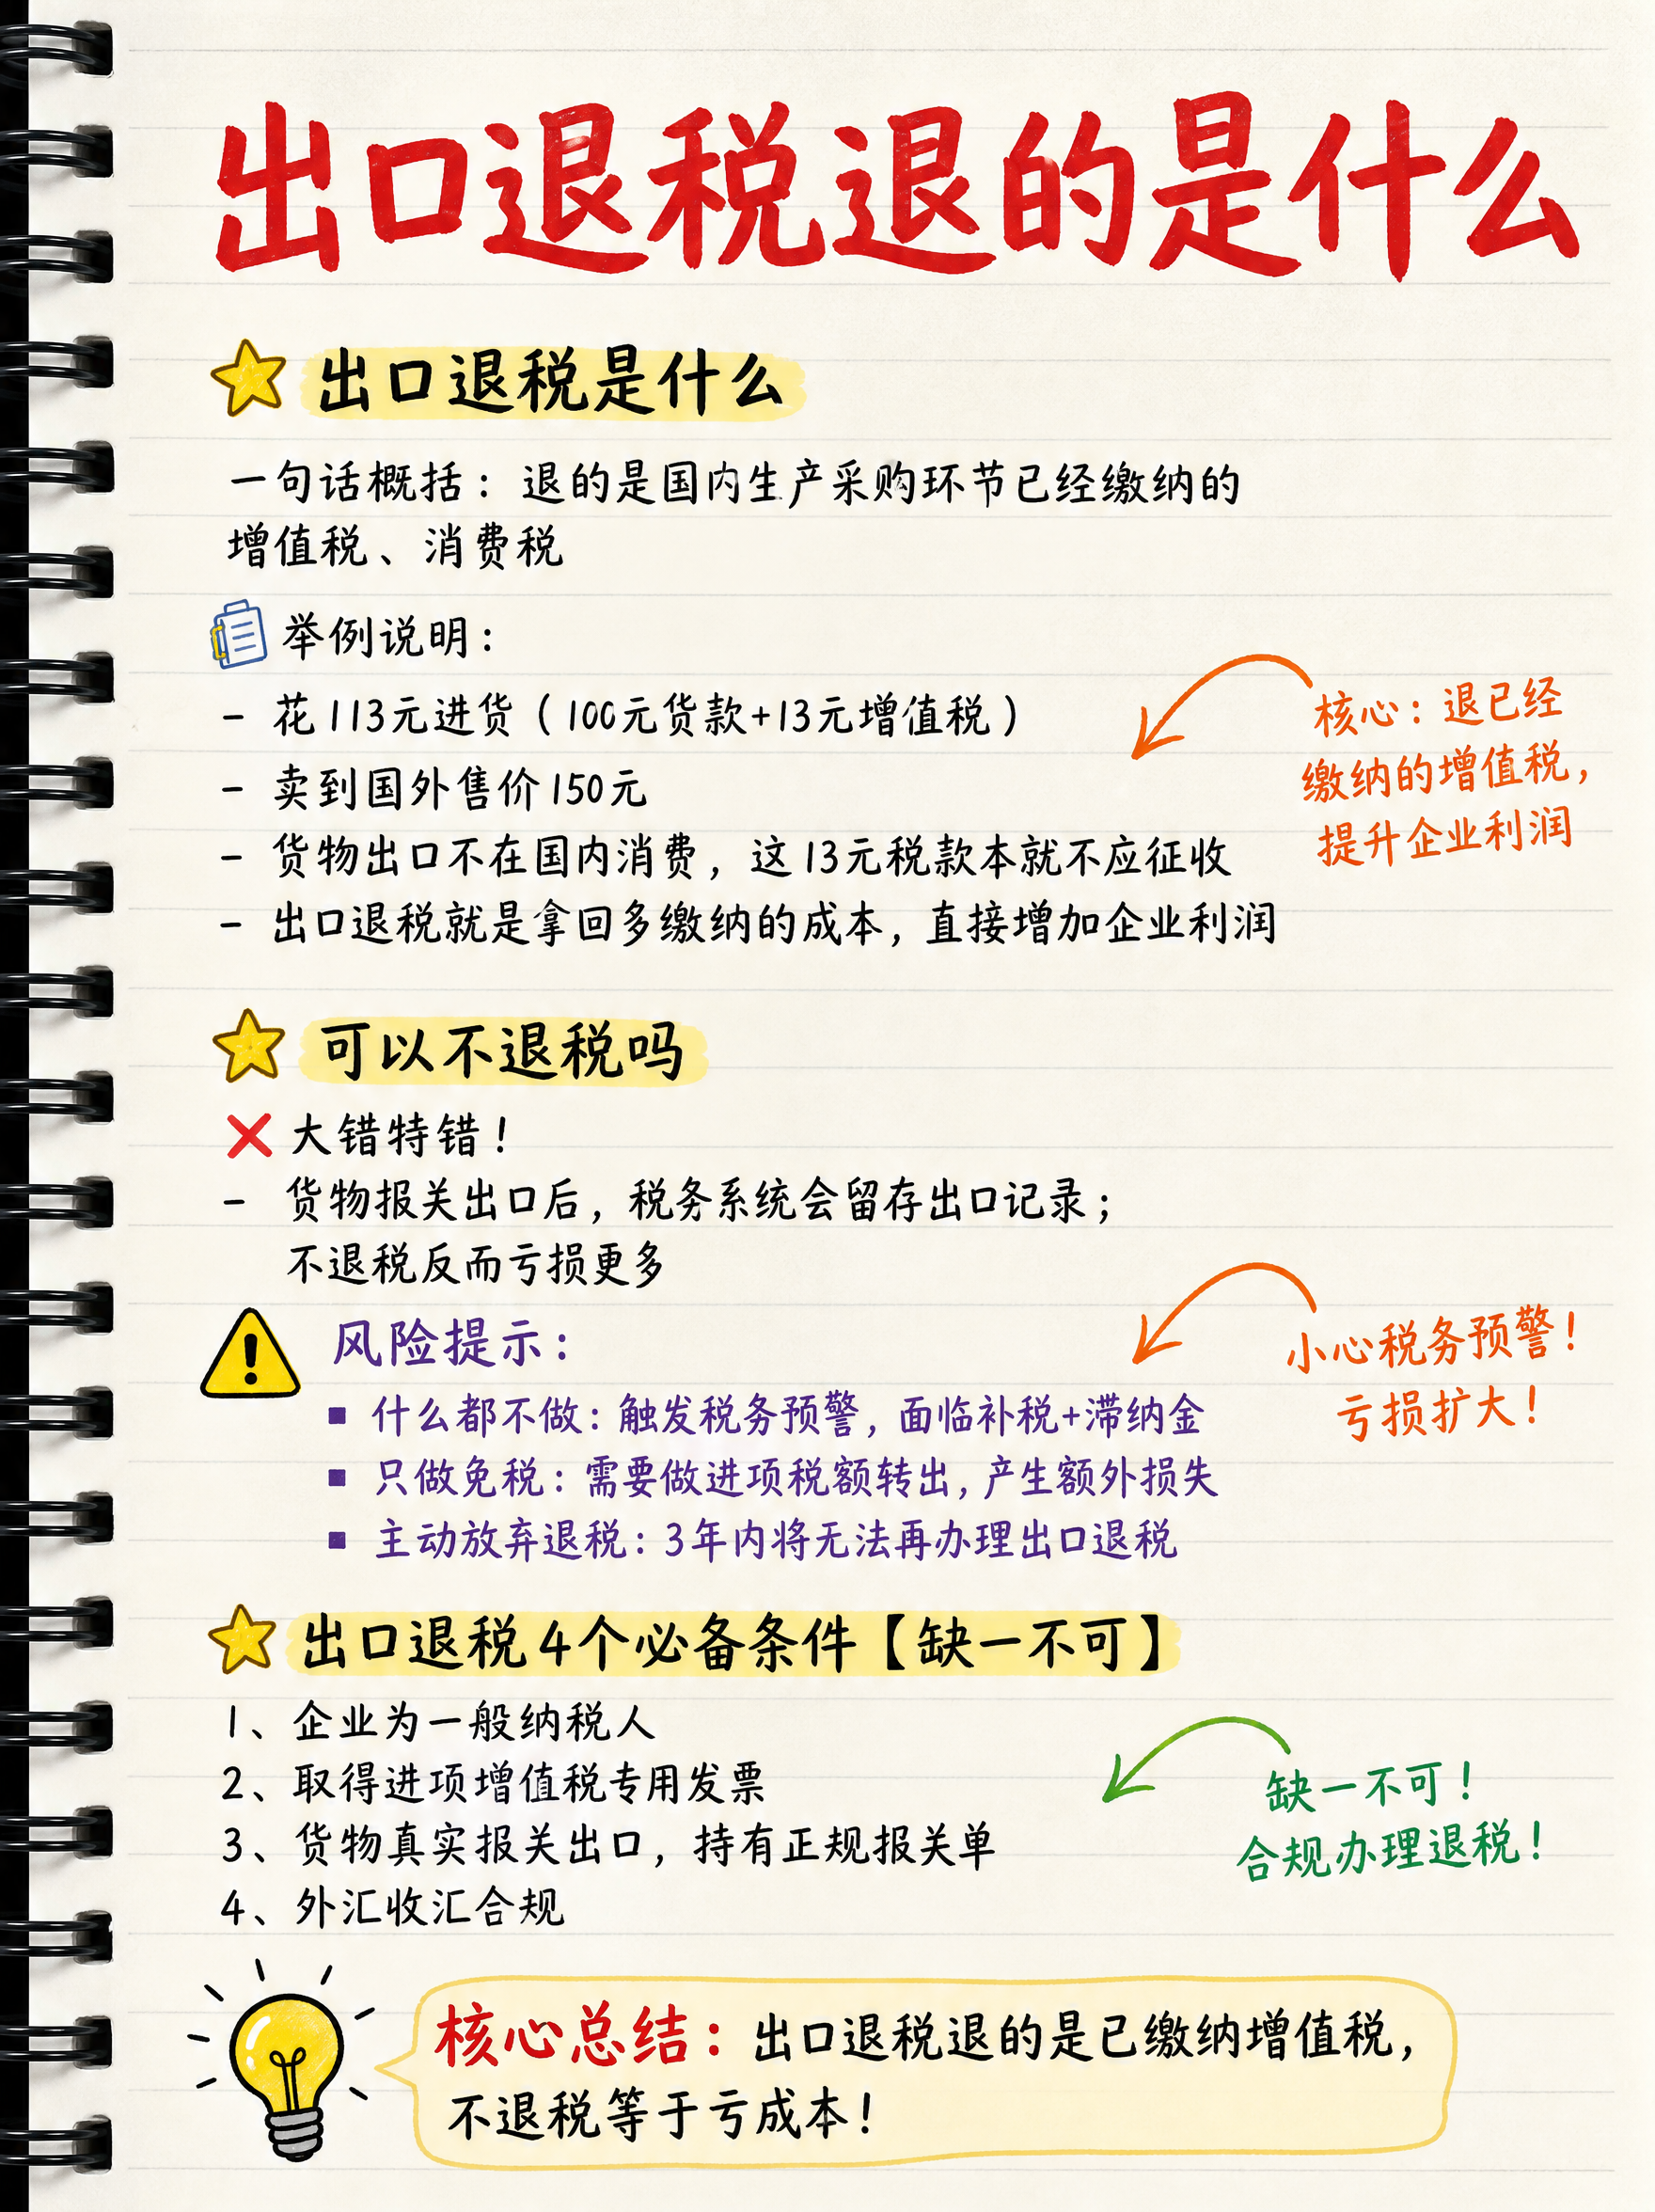 出口退税退的是什么
出口退税是什么
一句话概括：退的是国内生产采购环节已经缴纳的
增值税、消费税
举例说明：
- 花113元进货（100元货款+13元增值税）
- 卖到国外售价150元
- 货物出口不在国内消费，这13元税款本就不应征收
- 出口退税就是拿回多缴纳的成本，直接增加企业利润
核心：退已经
缴纳的增值税，
提升企业利润
可以不退税吗
大错特错！
- 货物报关出口后，税务系统会留存出口记录；
不退税反而亏损更多
风险提示：
▪ 什么都不做：触发税务预警，面临补税+滞纳金
▪ 只做免税：需要做进项税额转出，产生额外损失
▪ 主动放弃退税：3年内将无法再办理出口退税
小心税务预警！
亏损扩大！
出口退税4个必备条件【缺一不可】
1、企业为一般纳税人
2、取得进项增值税专用发票
3、货物真实报关出口，持有正规报关单
4、外汇收汇合规
缺一不可！
合规办理退税！
核心总结：出口退税退的是已缴纳增值税，
不退税等于亏成本！